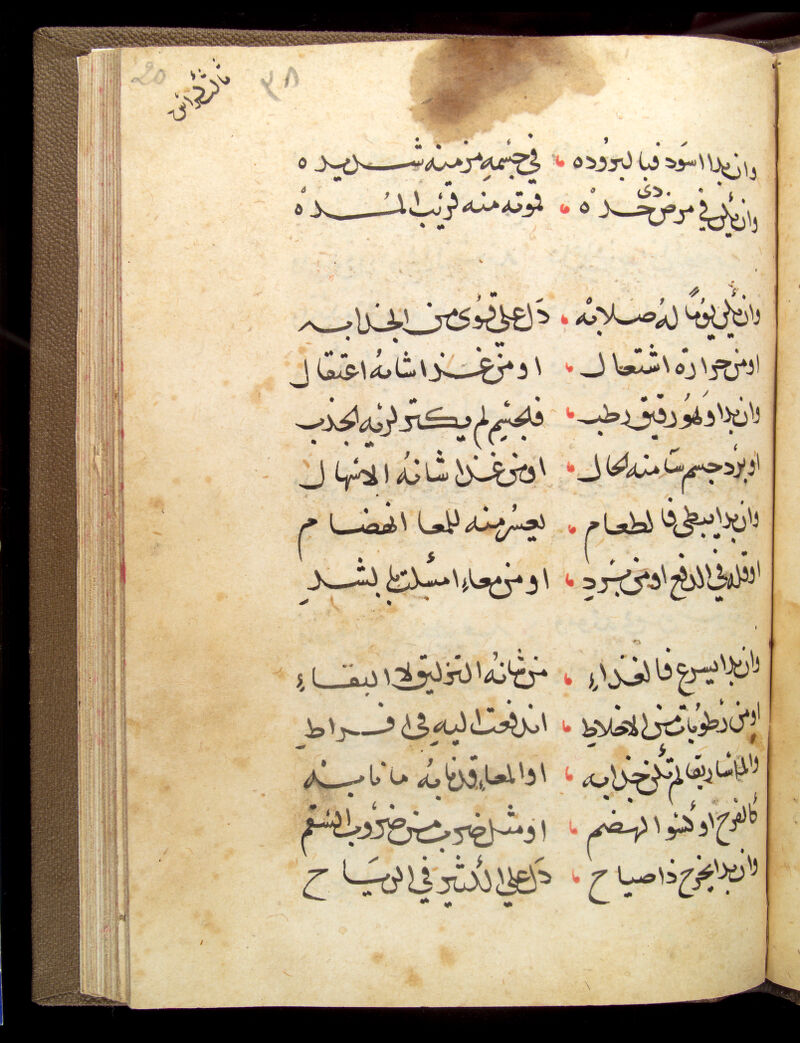 20
٣٨
ثالث كراس
وان بدا اسود فبالبروده ، في جسمه مزمنه شديده
وان يكن في مرض ذي حده ، فموته منه قريب المده
وان يكن يوما له صلابه ، دل على قوى من الجذابه
او من حرارة اشتعال ، او من غذا شانه اعتقال
وان بدا وهو رقيق رطب ، فلجسم لم يكثر لريه الجذب
او برد جسم سا منه الحال ، او من غذا شانه الاسهال
وان بدا يبطي فالطعام ، يعسر منه للمعا انهضام
او قله في الدفع او من برد ، او من معاء امسكت بالشد
وان بدا يسرع فالغذاء ، من شانه التزليق لا البقاء
او من رطوبات من الاخلاط ، اندفعت اليه في افراط
والماساريقا لم تكن جذابه ، او المعاء قد نابه ما نابه
كالقرح او كسو الهضم ، او مثل ضرب من ضروب السقم
وان بدا يخرج ذا صياح ، دل على الكثير في الرياح